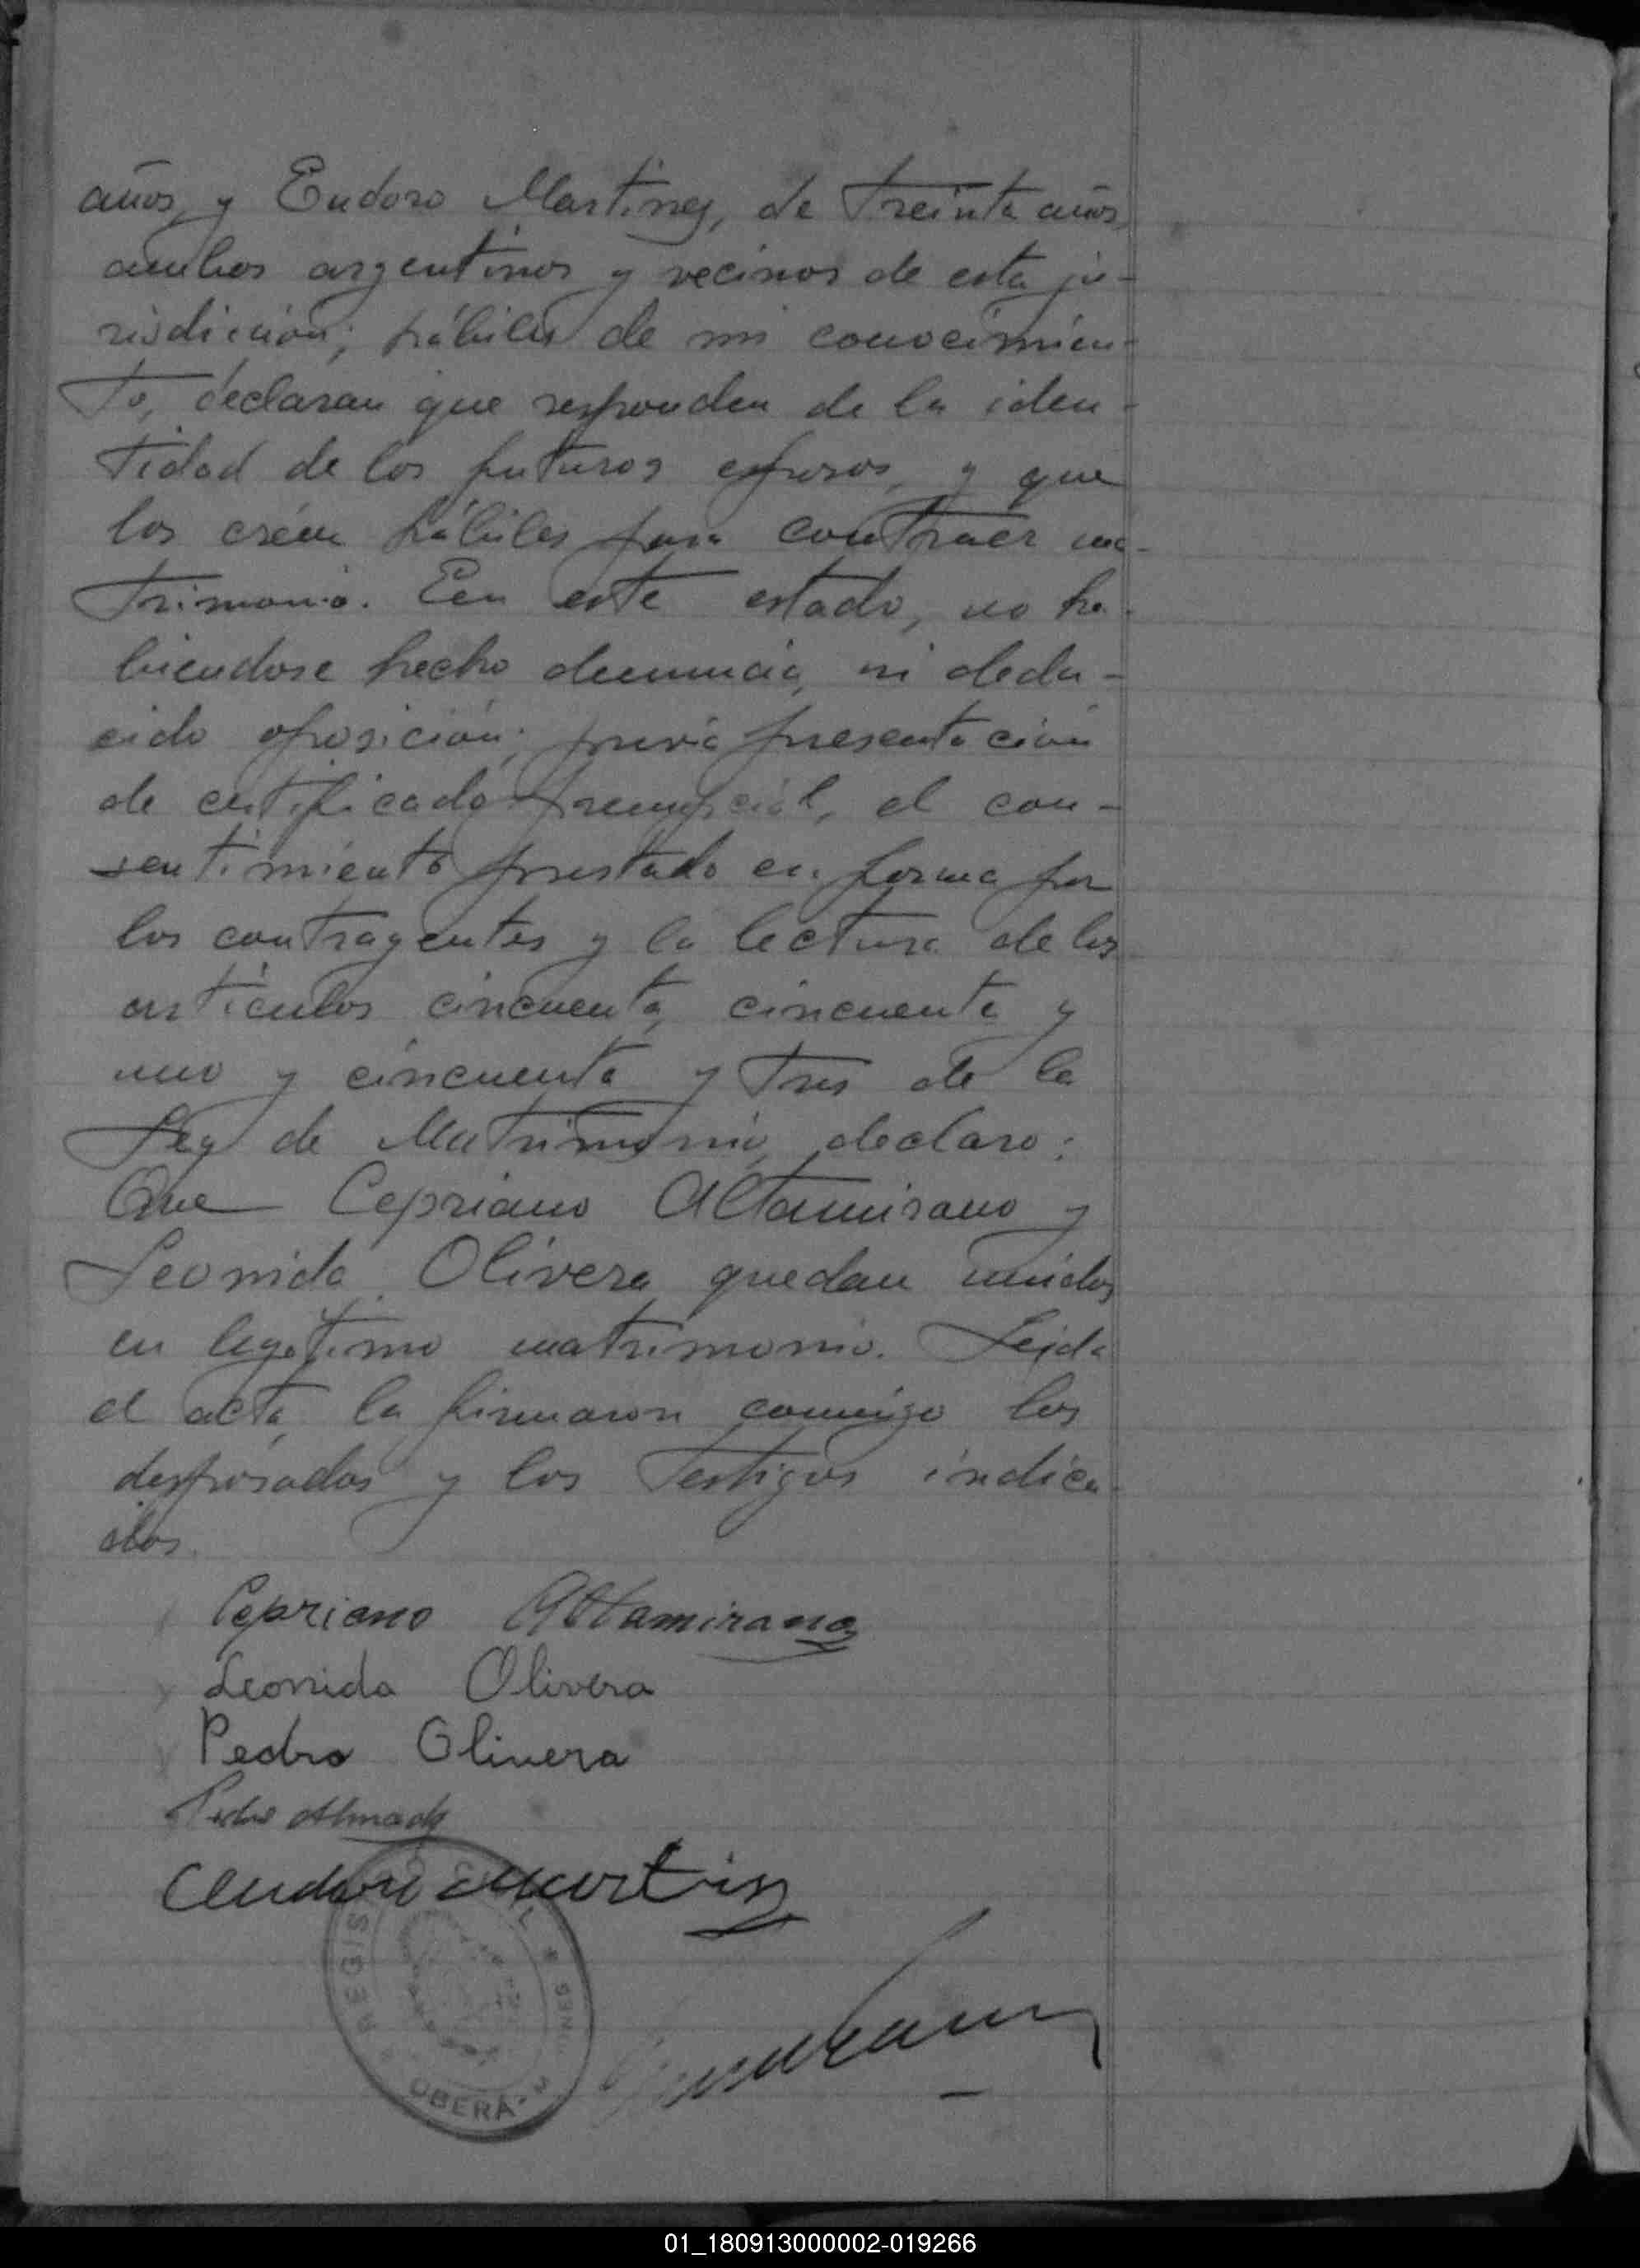 años, y Eudoro Martinez, de treinta años,
ambos argentinos y vecinos de esta ju-
risdicción; hábiles de mi conocimien-
to, declaran que responden de la iden-
tidad de los futuros esposos, y que
los créen hábiles para contraer ma-
trimonio. En este estado, no ha-
biendose hecho denuncia, ni dedu-
cido oposición; previa presentación
de certificado prenupcial, el con-
sentimiento prestado en forma por
los contrayentes y la lectura de los
artículos cincuenta, cincuenta y
uno y cincuenta y tres de la
Ley de Matrimonio, declaro:
Que Cepriano Altamirano y
Leonida Olivera quedan unidos
en legítimo matrimonio. Leida
el acta, la firmaron conmigo los
desposados y los testigos indica-
dos.
Cepriano Altamirano
Leonida Olivera
Pedro Olivera
Pedro Almada
Eudoro Martinez
REGIS
OBERÁ
01_180913000002-019266